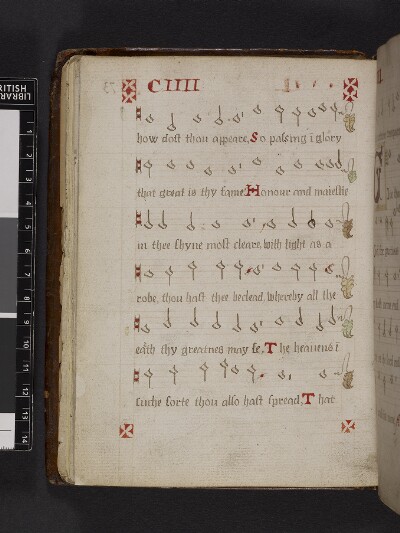 CIIII
how dost thou appeare, So passing ī glory
that great is thy fame Honour and maiestie
in thee shyne most cleare, with light as a
robe, thou hast thee beclead, whereby all the
earth thy greatnes may se, The heauens ī
suche sorte thou also hast spread, That